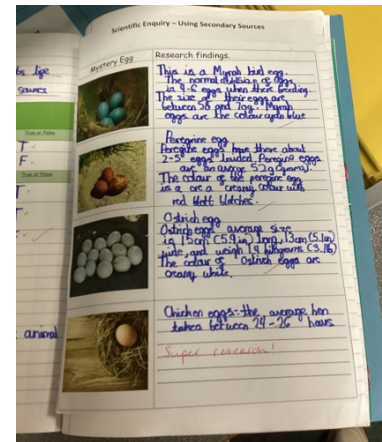 Scientific Enquiry – Using Secondary Sources
Mystery Egg
Research findings.
This is a Mynah bird egg.
The normal of eggs
is 4-6 eggs when there breeding.
The size of their eggs are
between 58 and 70g. Mynah
eggs are the colour cyan blue
Peregrine egg
Peregine eggs have there about
2-5 eggs Peregine eggs
are on average 52g (grams).
The colour of the peregine egg
is a creamy colour with
red blotches.
Ostrich egg
Ostrich eggs average size
is 15cm (5.9in) long, 13cm (5.1in)
wide, and weigh 1.4 kilograms (3.1lb)
The colour of Ostrich eggs are
creamy white.
Chicken eggs:- the average hen
takes between 24-26 hours
Super research!
life
True or False
T
F
True or False
T
animal